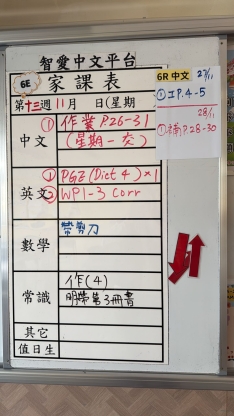 智愛中文平台
6E 家課表
第十三週11月 日(星期
中文 ① 作業P26-31
(星期一交)
英文 ① PGE(Dict 4)×1
② WP1-3 Corr
數學 帶剪刀
常識 作(4)
明帶第3冊書
其它
值日生
6R 中文 27/11
① 工P.4-5
28/11
① 補P.28-30